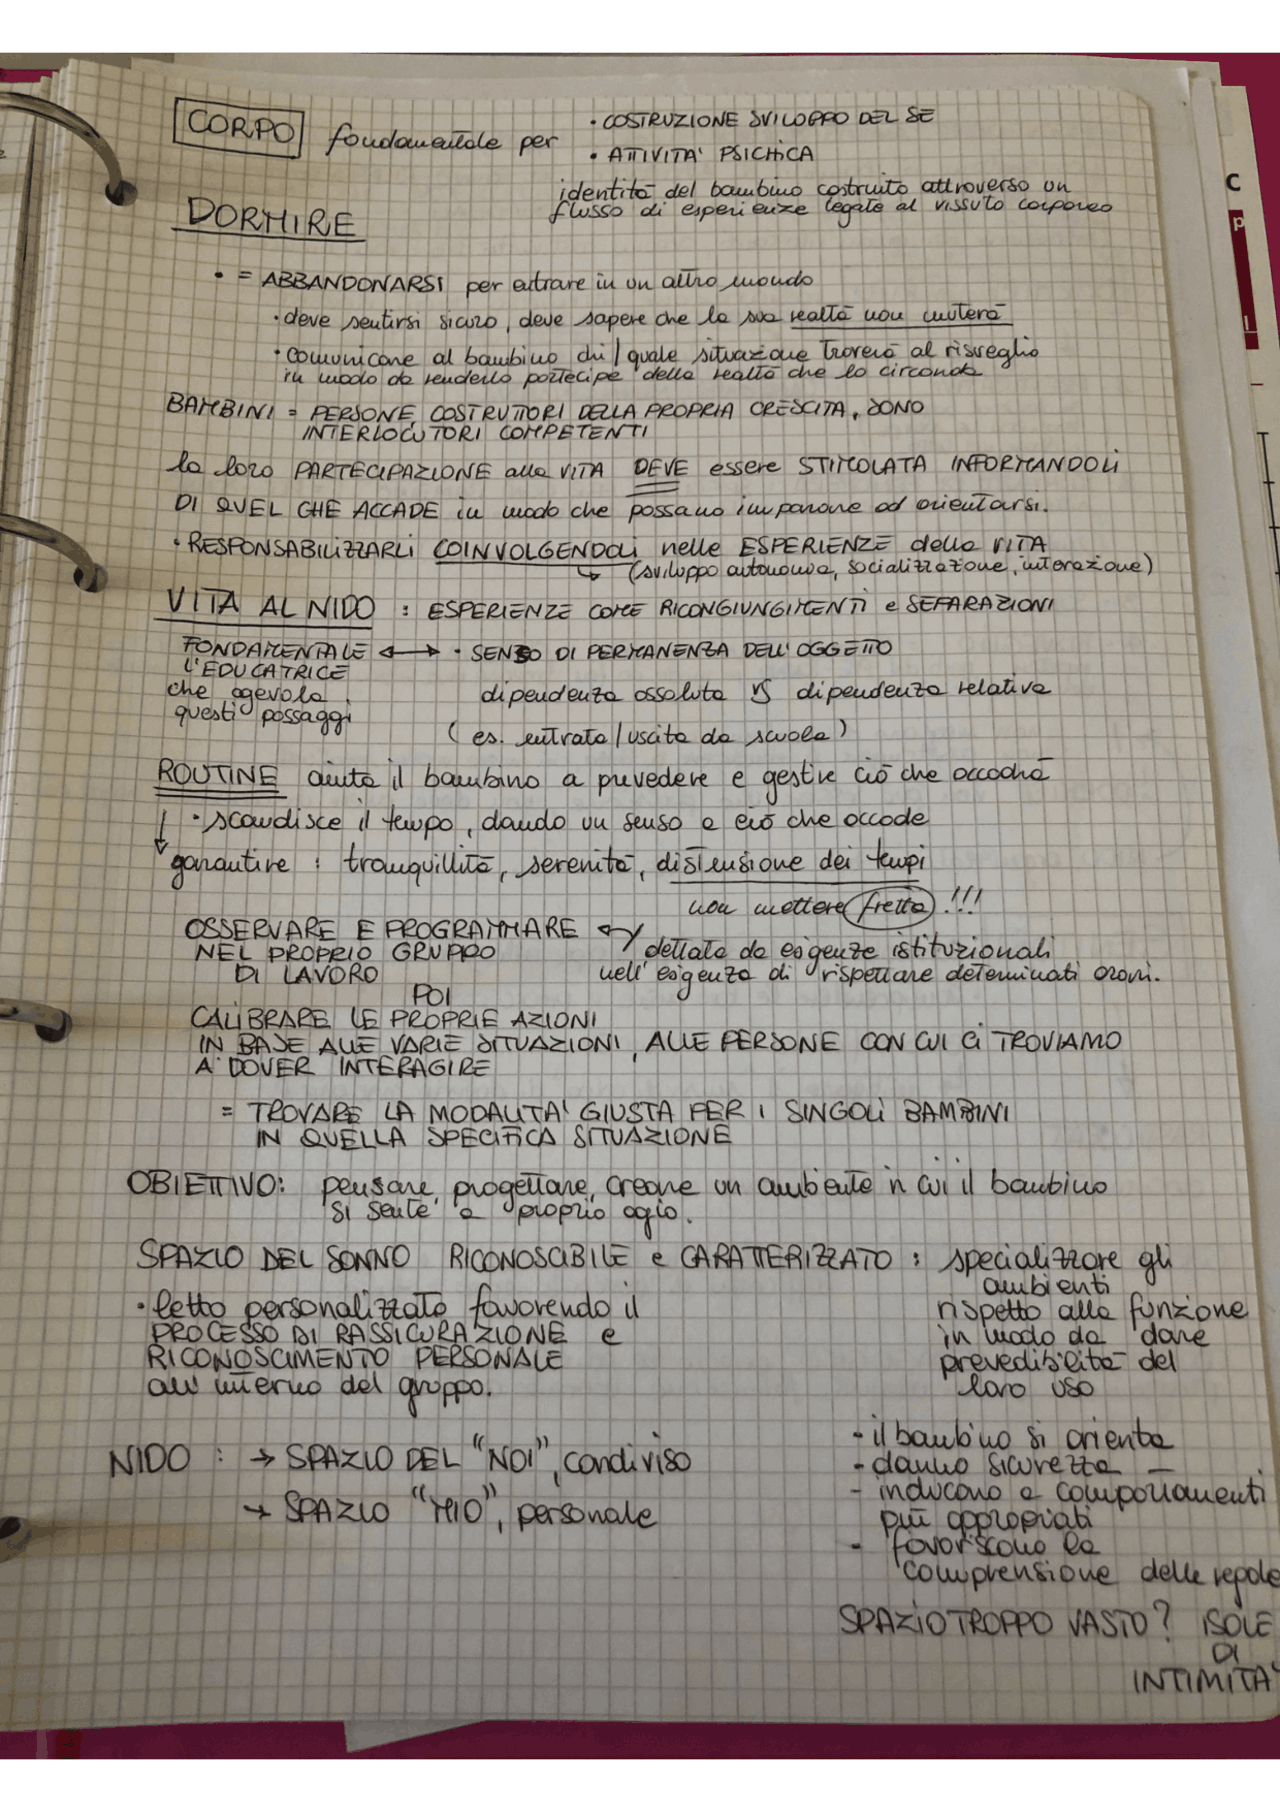 CORPO fondamentale per
• COSTRUZIONE SVILUPPO DEL SE
• ATTIVITA' PSICHICA
identità del bambino costruito attraverso un
flusso di esperienze legate al vissuto corporeo
DORMIRE
• = ABBANDONARSI per entrare in un altro mondo
• deve sentirsi sicuro, deve sapere che la sua realtà non muterà
• comunicare al bambino chi/quale situazione troverà al risveglio
in modo da renderlo partecipe della realtà che lo circonda
BAMBINI = PERSONE, COSTRUTTORI DELLA PROPRIA CRESCITA, SONO
INTERLOCUTORI COMPETENTI
la loro PARTECIPAZIONE alla VITA DEVE essere STIMOLATA INFORMANDOLI
DI QUEL CHE ACCADE in modo che possano imparare ad orientarsi.
• RESPONSABILIZZARLI COINVOLGENDOLI nelle ESPERIENZE della VITA
↳ (sviluppo autonomia, socializzazione, interazione)
VITA AL NIDO : ESPERIENZE COME RICONGIUNGIMENTI e SEPARAZIONI
FONDAMENTALE ↔ • SENSO DI PERMANENZA DELL'OGGETTO
L'EDUCATRICE
che agevola
questi passaggi
dipendenza assoluta VS dipendenza relativa
(es. entrata/uscita da scuola)
ROUTINE aiuta il bambino a prevedere e gestire ciò che accadrà
• scandisce il tempo, dando un senso a ciò che accade
↓ garantire : tranquillità, serenità, distensione dei tempi
non mettere fretta !!!
dettata da esigenze istituzionali
nell'esigenza di rispettare determinati orari.
OSSERVARE E PROGRAMMARE
NEL PROPRIO GRUPPO
DI LAVORO
POI
CALIBRARE LE PROPRIE AZIONI
IN BASE ALLE VARIE SITUAZIONI, ALLE PERSONE CON CUI CI TROVIAMO
A DOVER INTERAGIRE
= TROVARE LA MODALITA' GIUSTA PER I SINGOLI BAMBINI
IN QUELLA SPECIFICA SITUAZIONE
OBIETTIVO: pensare, progettare, creare un ambiente in cui il bambino
si sente a proprio agio.
SPAZIO DEL SONNO RICONOSCIBILE e CARATTERIZZATO : specializzare gli
ambienti
rispetto alla funzione
in modo da dare
prevedibilità del
loro uso
• letto personalizzato favorendo il
PROCESSO DI RASSICURAZIONE e
RICONOSCIMENTO PERSONALE
all'interno del gruppo.
- il bambino si orienta
- danno sicurezza —
- inducono a comportamenti
più appropriati
- favoriscono la
comprensione delle regole
NIDO : → SPAZIO DEL "NOI", condiviso
→ SPAZIO "MIO", personale
SPAZIO TROPPO VASTO? ISOLE
DI
INTIMITA'
C
p